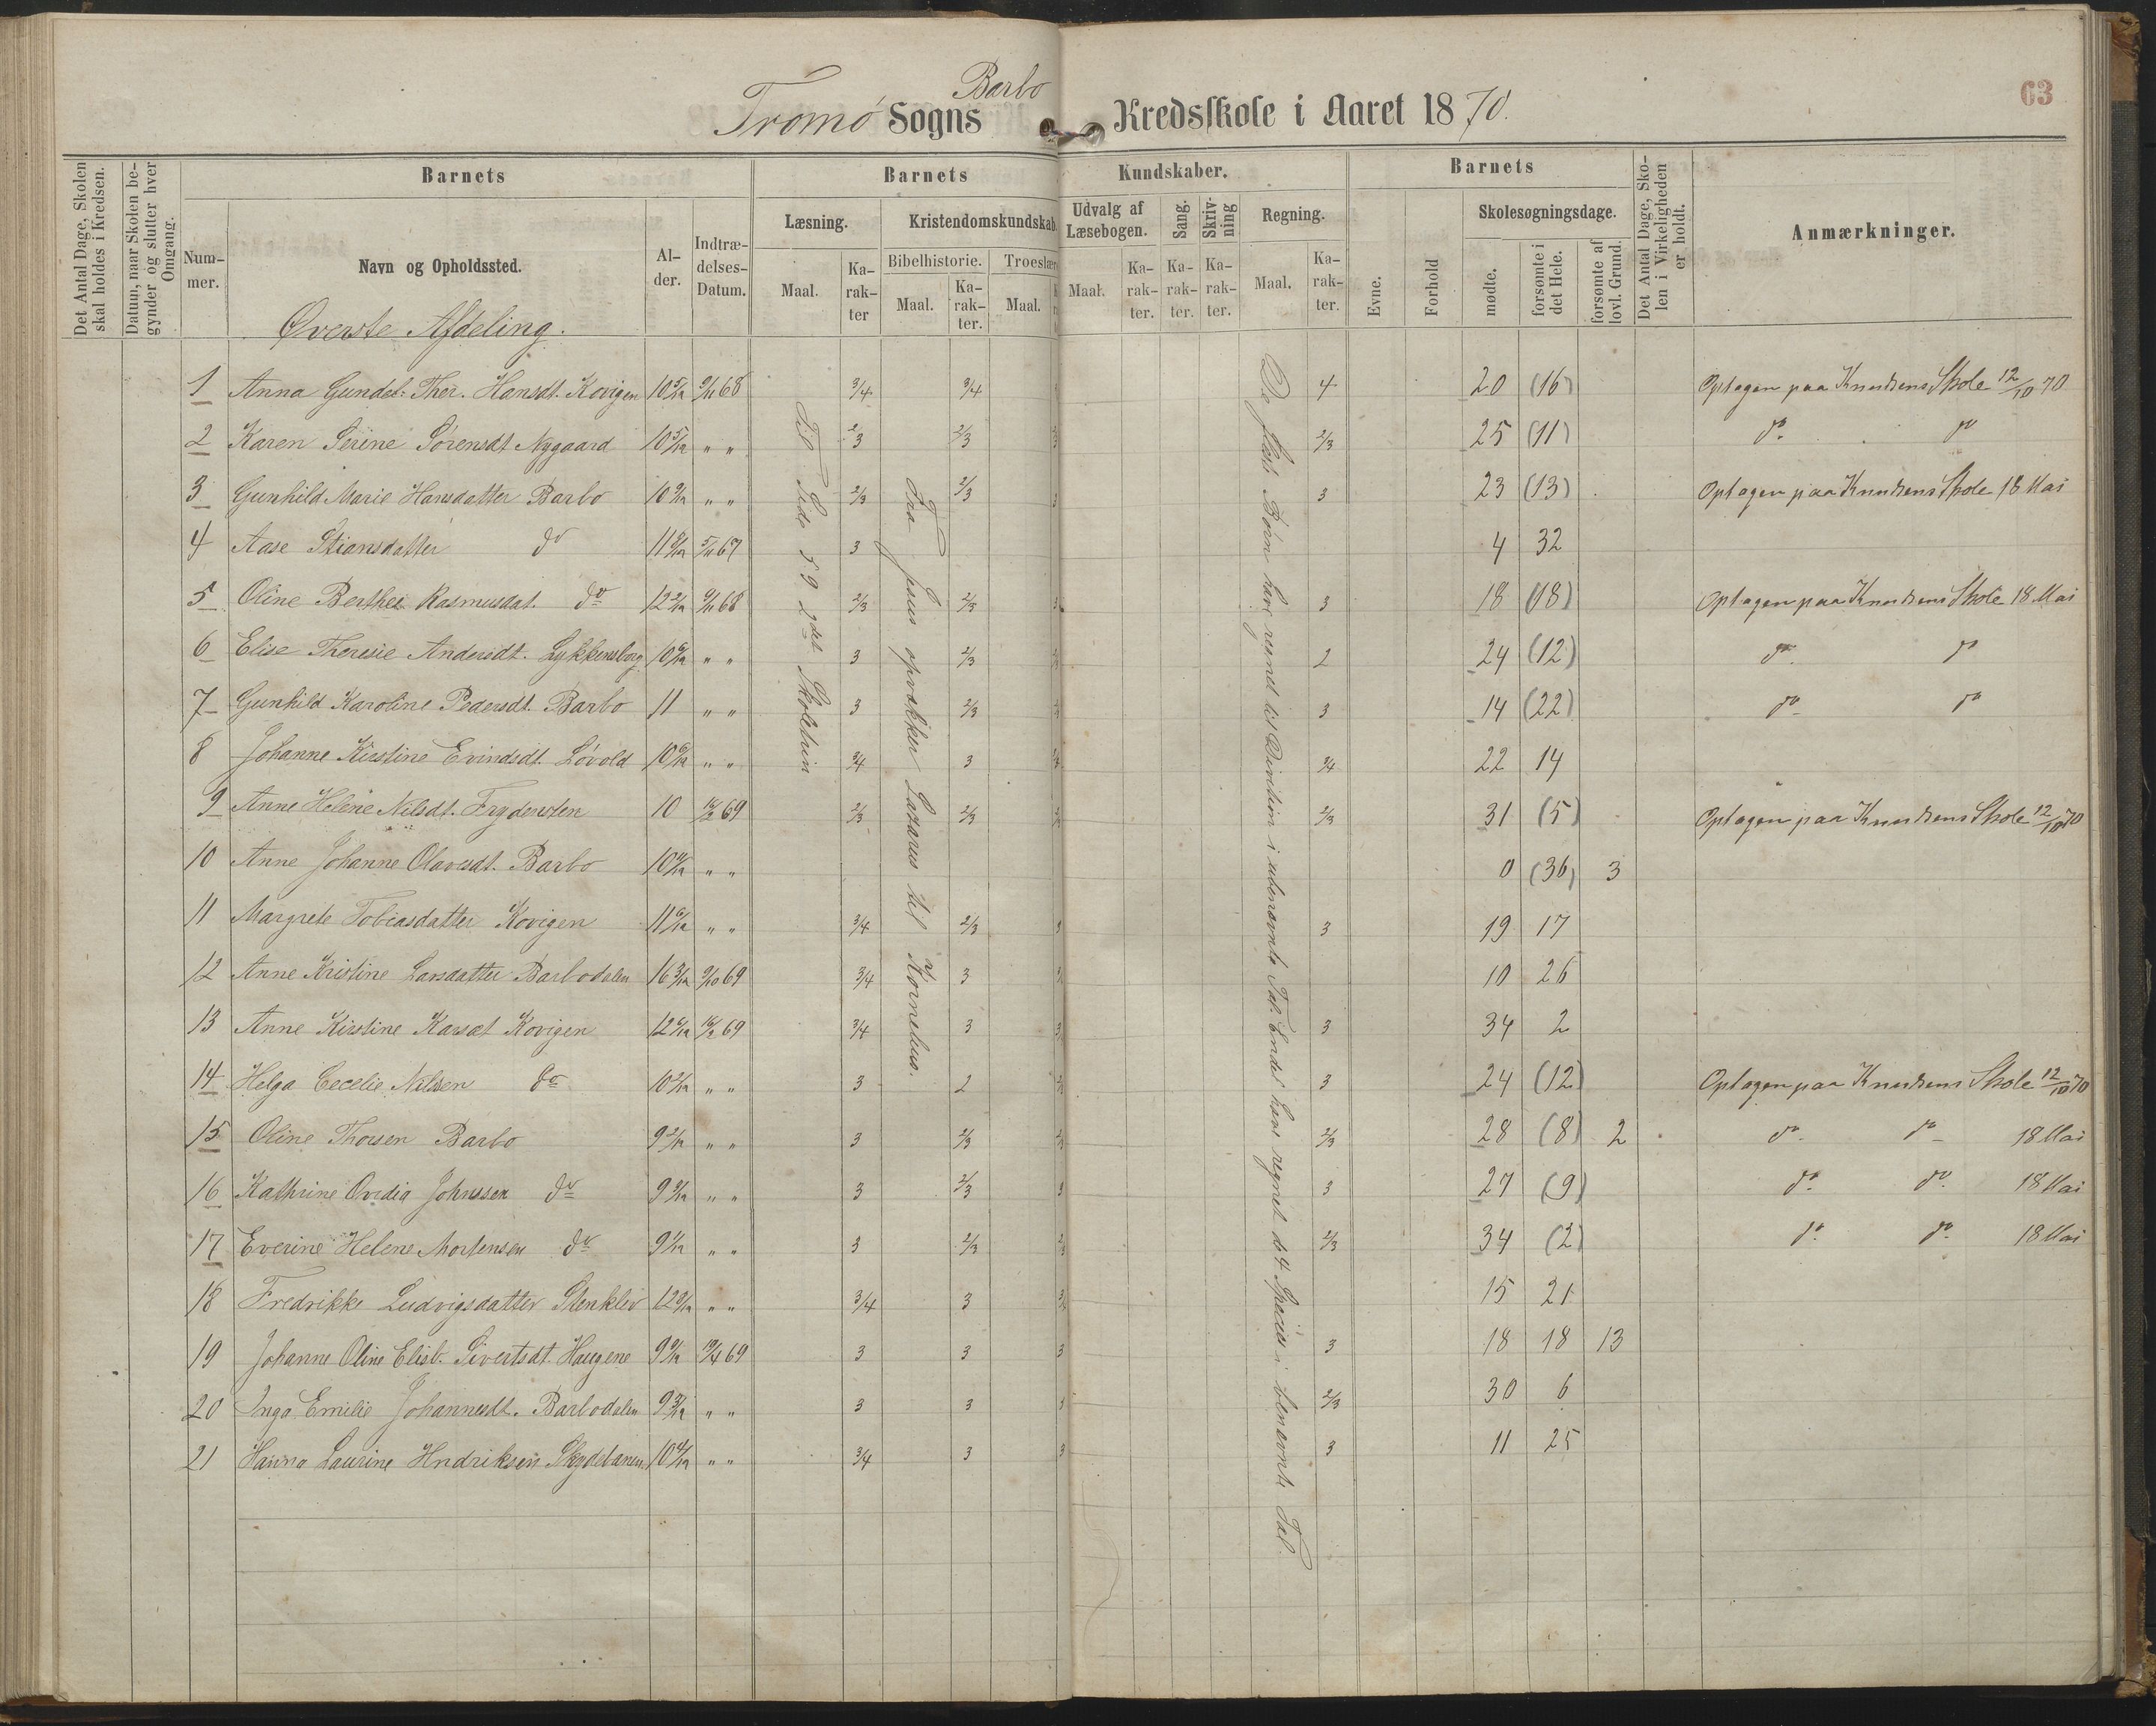 63
Barbo
Tromø Sogns Kredsskole i Aaret 1870.
Det Antal Dage, Skolen skal holdes i Kredsen.
Datum, naar Skolen begynder og slutter hver Omgang.
Barnets
Nummer.
Navn og Opholdssted.
Alder.
Indtrædelses-Datum.
Barnets
Kundskaber.
Læsning.
Maal.
Karakter
Kristendomskundskab.
Bibelhistorie.
Maal.
Karakter.
Troeslær
Maal.
Udvalg af Læsebogen.
Maal.
Karakter.
Sang.
Karakter.
Skrivning
Karakter.
Regning.
Maal.
Karakter.
Barnets
Evne.
Forhold
Skolesøgningsdage.
mødte.
forsømte i det Hele.
forsømte af lovl. Grund.
Det Antal Dage, Skolen i Virkeligheden er holdt.
Anmærkninger.
Øverste Afdeling.
Til Side 59 2det Skoletrin
Fra Jesus opvækker Lazarus til Kornelius.
De fleste Børn have regnet til Division i ubenævnte Tal. Ende have regnet de 4 Species i benævnte Tal.
1 Anna Gundel. Ther. Hansdt. Kovigen 10 5/12 9/11 68 3/4 3/4 4 20 (16) Optagen paa Knudsens Skole 12/10 70
2 Karen Serine Sørensdt Nygaard 10 5/12 " " 2/3 2/3 2/3 25 (11) do do
3 Gunhild Marie Hansdatter Barbo 10 9/12 " " 2/3 2/3 3 23 (13) Optagen paa Knudsens Skole 18 Mai
4 Aase Stiansdatter do 11 8/12 5/11 67 3 4 32
5 Oline Berthea Rasmusdat. do 12 2/12 9/11 68 2/3 2/3 3 18 (18) Optagen paa Knudsens Skole 18 Mai
6 Elise Theresie Andersdt. Lykkensborg 10 6/12 " " 3 2/3 2 24 (12) do do
7 Gunhild Karoline Pedersdt. Barbo 11 " " 3 2/3 3 14 (22) do do
8 Johanne Kirstine Evindsdt. Løvold 10 6/12 " " 3/4 3 3/4 22 14
9 Anne Helene Nilsdt. Frydensten 10 69 2/3 2/3 2/3 31 (5) Optagen paa Knudsens Skole 12/10 70
10 Anne Johanne Olavesdt. Barbo 10 " " 0 (36) 3
11 Margrete Tobiasdatter Kovigen 11 6/12 " " 3/4 2/3 3 19 17
12 Anne Kristine Larsdatter Barbodalen 16 3/12 9/10 69 3/4 3 10 26
13 Anne Kirstine Karsdt Kovigen 12 69 3/4 3 3 34 2
14 Helga Cecelie Nilsen do 10 " " 3 2 3 24 (12) Optagen paa Knudsens Skole 12/10 70
15 Oline Thorsen Barbo 9 2/12 " " 3 2/3 2/3 28 (8) 2 do do 18 Mai
16 Kathrine Ovidia Johnssen do 9 " " 3 2/3 3 27 (9) do do 18 Mai
17 Everine Helene Mortensen do 9 " " 3 2/3 2/3 34 (2) do do 18 Mai
18 Fredrikke Ludvigsdatter Stenkliv 12 " " 3/4 3 15 21
19 Johanne Oline Elisb. Sivertsdt. Haugene 9 69 3 3 3 18 18 13
20 Inga Emilie Johannesdt. Barbodalen 9 " " 3 3 2/3 30 6
21 Hanna Laurine Hndriksen Skydebanen 10 " " 3/4 3 3 11 25